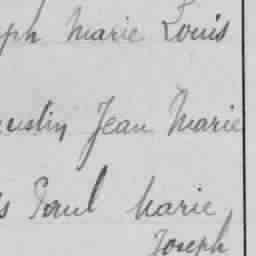 ph Marie Louis
ustin Jean Marie
s Paul Marie
Joseph